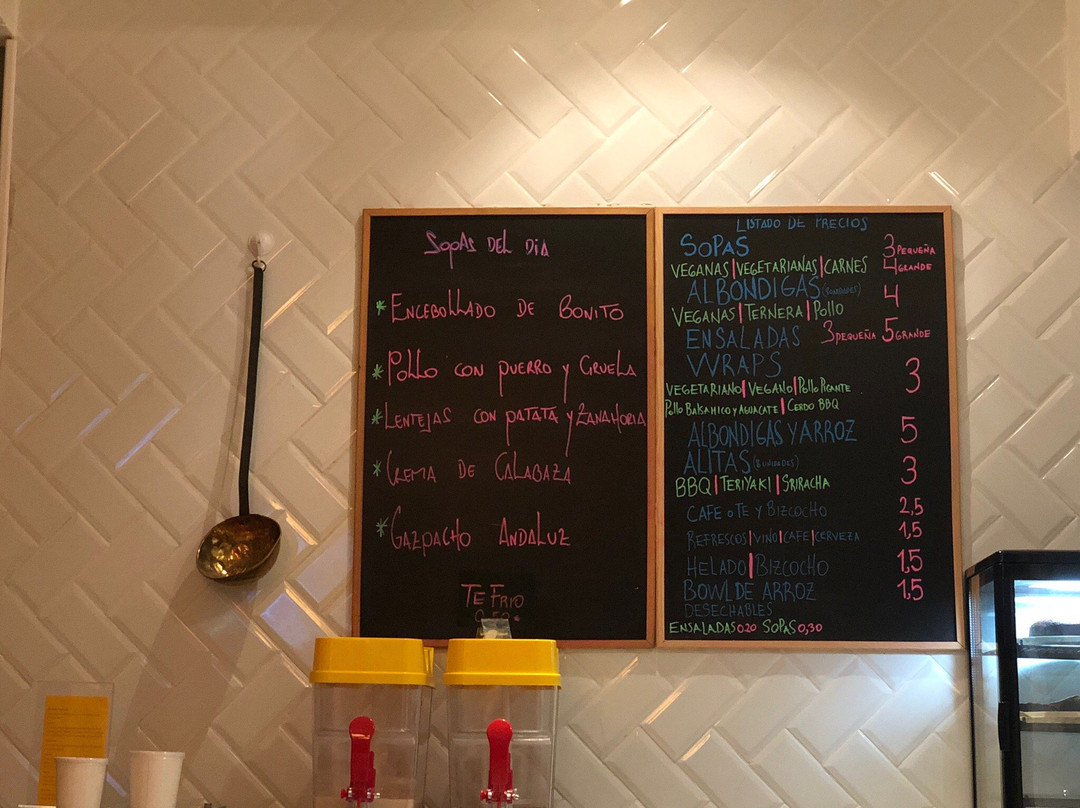 SOPAS DEL DIA
* ENCEBOLLADO DE BONITO
* POLLO CON PUERRO Y CIRUELA
* LENTEJAS CON PATATA Y ZANAHORIA
* CREMA DE CALABAZA
* GAZPACHO ANDALUZ
TE FRIO
LISTADO DE PRECIOS
SOPAS 3 PEQUEÑA
VEGANAS | VEGETARIANAS | CARNES 4 GRANDE
ALBONDIGAS (UNIDADES) 4
VEGANAS | TERNERA | POLLO
ENSALADAS 3 PEQUEÑA 5 GRANDE
WRAPS 3
VEGETARIANO | VEGANO | POLLO PICANTE
POLLO BALSAMICO Y AGUACATE | CERDO BBQ
ALBONDIGAS Y ARROZ 5
ALITAS 3
BBQ | TERIYAKI | SRIRACHA
CAFE O TE Y BIZCOCHO 2,5
REFRESCOS | VINO | CAFE | CERVEZA 1,5
HELADO | BIZCOCHO 1,5
BOWL DE ARROZ 1,5
DESECHABLES
ENSALADAS 0,20 SOPAS 0,30